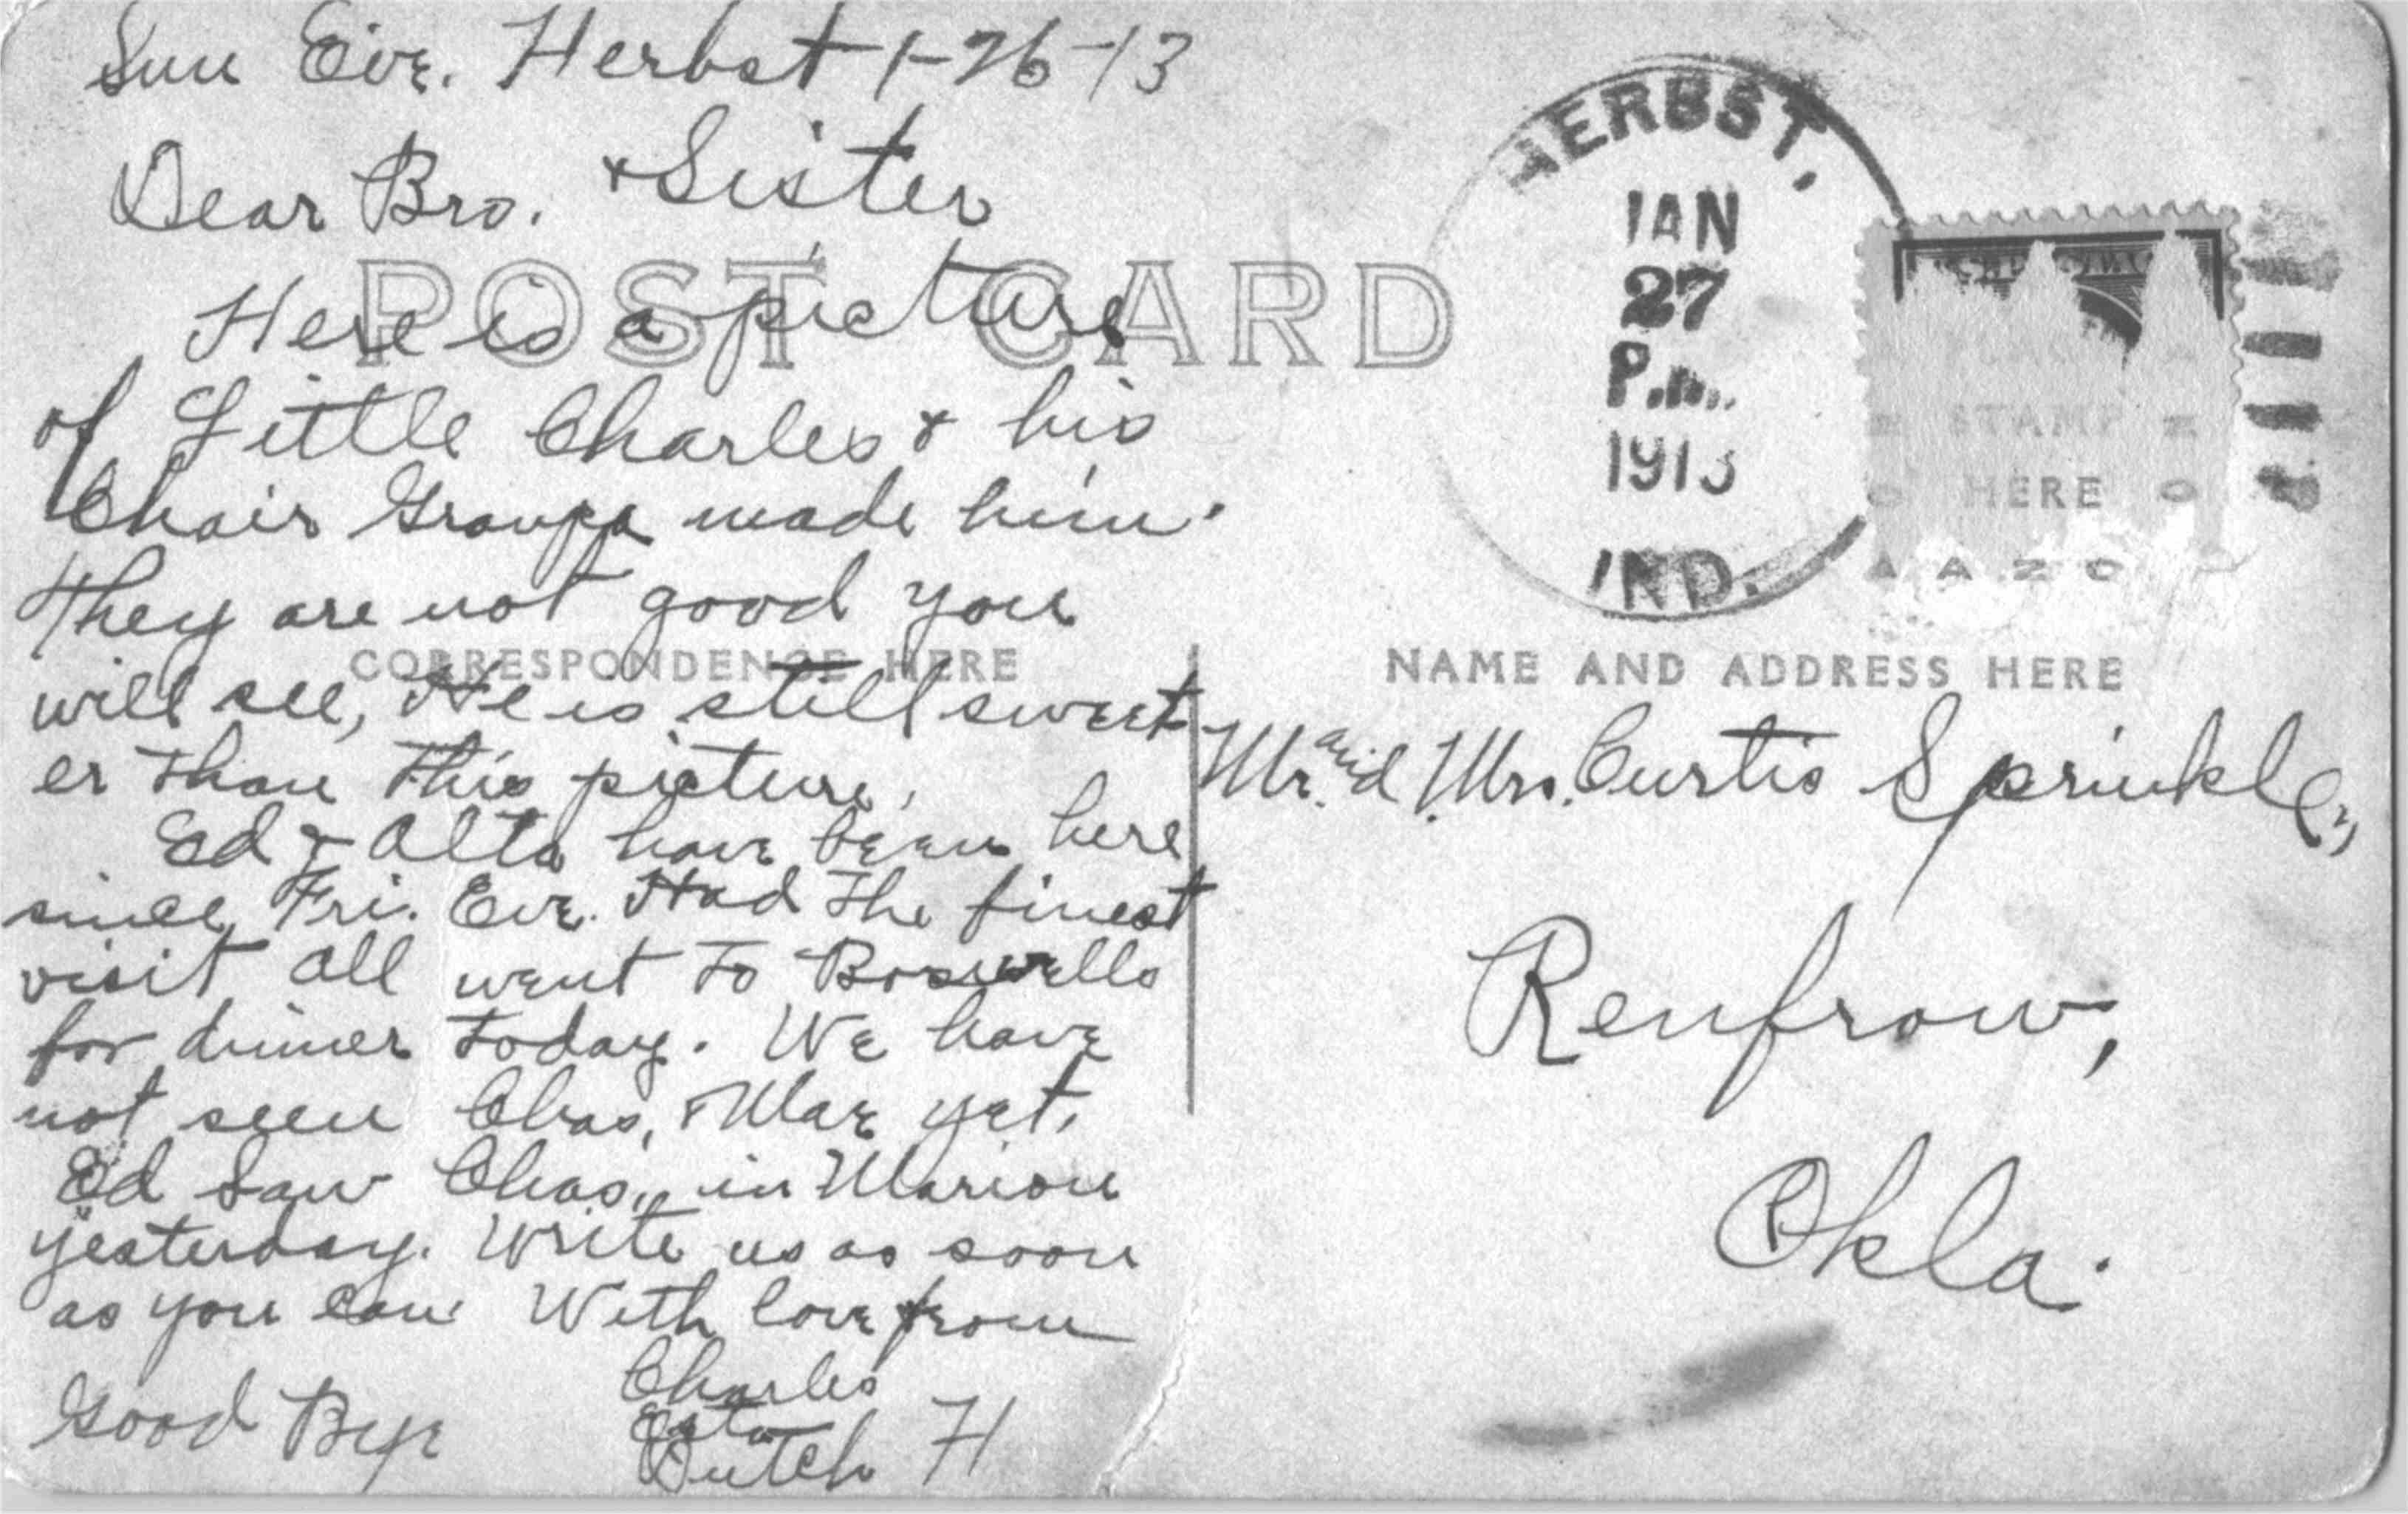 Sun Eve. Herbst 1-26-13
Dear Bro. & Sister
POST CARD
Here is a picture
of Little Charles & his
Chair Granpa made him.
They are not good you
CORRESPONDENCE HERE
will see, He is still sweet
er than this picture.
Ed & Alta have been here
since Fri. Eve. Had the finest
visit all went to Boswells
for dinner today. We have
not seen Chas, & Mae yet.
Ed Saw Chas., in Marion
yesterday. Write us as soon
as you can With love from
Charles
Good Bye
Dutch H
HERBST.
JAN
27
P.M.
1913
IND.
STAMP
HERE
NAME AND ADDRESS HERE
Mr. and Mrs. Curtis Sprinkle,
Renfrow,
Okla.